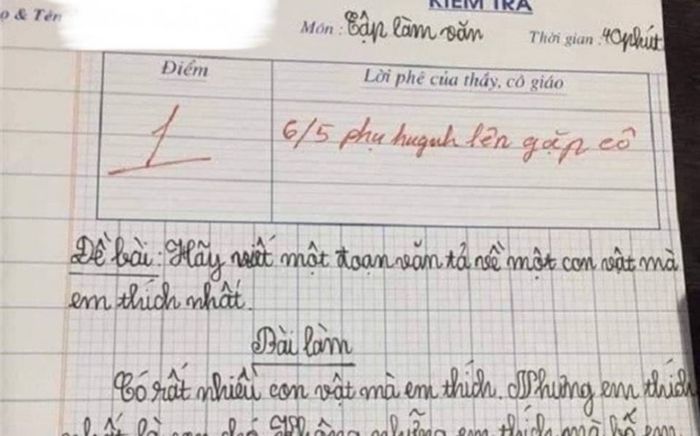 KIỂM TRA
ọ & Tên
Môn : Tập làm văn Thời gian : 40 phút
Điểm Lời phê của thầy, cô giáo
1 6/5 phụ huynh lên gặp cô
Đề bài : Hãy viết một đoạn văn tả về một con vật mà
em thích nhất.
Bài làm
Có rất nhiều con vật mà em thích. Nhưng em thích
nhất là con chó. Không những em thích mà bố em